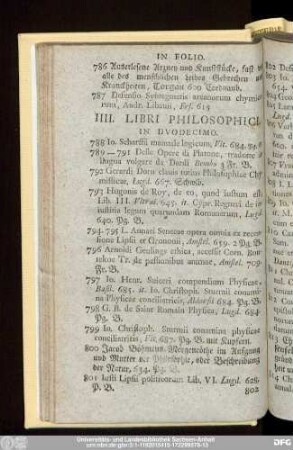 IN FOLIO.
786 Auserlesene Artzney und Kunststücke, fast
alle des menschlichen Leibes Gebrechen
Kranckheiten, Torgau 600
787 arcanorum chymico-
rum, Andr. Libavii, Frf. 615
IIII. LIBRI PHILOSOPHICI
IN DVODECIMO.
788 Io. Scharfii manuale logicum, Vit. 684.
789 — 791 Delle Opere di Platone, tradotte
lingua vulgare da Dardi 3 Fr. B.
792 Gerardi Dorn clavis totius Philosophiae Chy-
misticae, Lugd. 667. Schwib.
793 Hugonis de Roy, de eo, quod iustum est
Lib. III. 645. it. Opp. Rogeri de in-
iustitia legum quarundam Romanarum, Lugd.
640. Pg. B.
794. 795 L. Annaei Senecae opera omnia ex recen-
sione Lipsii et Gronouii, Amstel. 659. 2 Pg. B.
796 Arnoldi Geulings ethica, accessit Corn. Bon-
tekoe Tr. de passionibus animae, Amstel. 709.
Fr. B.
797 Io. Henr. Suiceri compendium Physicae,
Basil. 685. it. Io. Christoph. Sturmii conamin
na Physicae conciliatricis, Altdorfii 684. Pg. B.
798 G. B. de Saint Romain Physica, Lugd. 684.
Pg. B.
799 Io. Christoph. Sturmii conamina physicae
conciliatricis, 687. Pg. B. mit Kupfern.
800 Jacob Böhmens Morgenröthe im Aufgang
und Mutter der Philosophie, oder Beschreibung
der Natur, 634. Pg. B.
801 Iusti Lipsii politicorum Lib. VI. Lugd. 628.
P. B.
802
Universitäts- und Landesbibliothek Sachsen-Anhalt